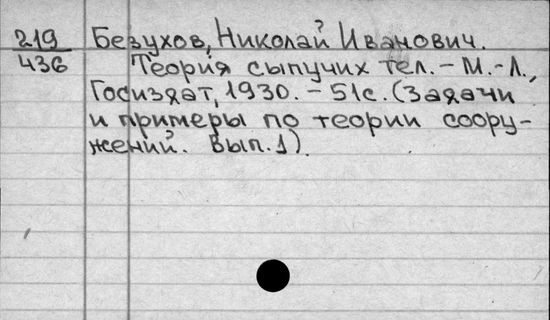 219
436
Безухов, Николай Иванович.
Теория сыпучих тел. - М.-Л.,
Госиздат, 1930. - 51с. (Задачи
и примеры по теории соору-
жений. Вып. 1).